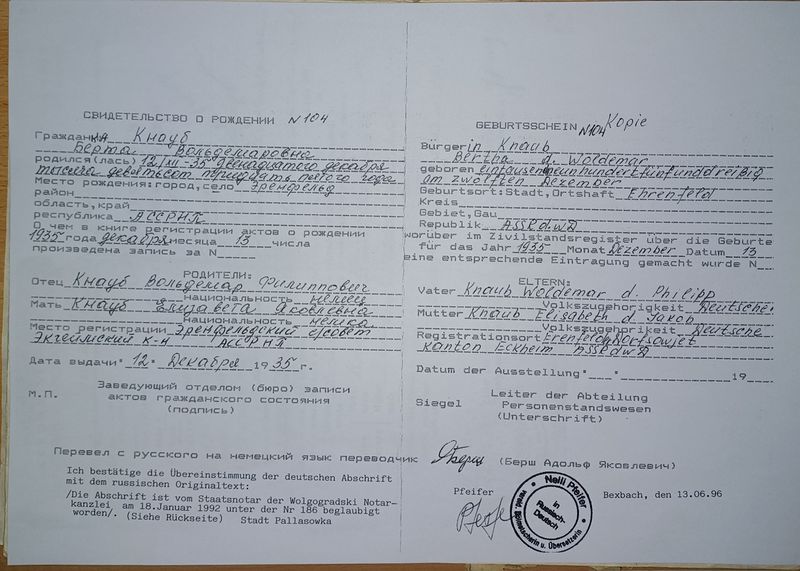 СВИДЕТЕЛЬСТВО О РОЖДЕНИИ N 104
Гражданка Кнауб
Берта Вольдемаровна
родился(лась) 12/XII-35 двенадцатого декабря
тысяча девятсот тридцать пятого года
Место рождения: город, село Эренфельд
район
область, край
республика АССРНП
О чем в книге регистрации актов о рождении
1935 года декабря месяца 13 числа
произведена запись за N
РОДИТЕЛИ:
Отец Кнауб Вольдемар Филиппович
национальность немец
Мать Кнауб Елизавета Яковлевна
национальность немка
Место регистрации Эренфельдский с/совет
Экгеймский к-н АССРНП
Дата выдачи "12" Декабря 1935 г.
Заведующий отделом (бюро) записи
М.П. актов гражданского состояния
(подпись)
GEBURTSSCHEIN N104 Kopie
Bürgerin Knaub
Bertha d. Woldemar
geboren eintausendneunhundertfünfunddreißig
am zwölften Dezember
Geburtsort: Stadt, Ortshaft Ehrenfeld
Kreis
Gebiet, Gau
Republik ASSRdWD
worüber im Zivilstandsregister über die Geburte
für das Jahr 1935 Monat Dezember Datum 13
eine entsprechende Eintragung gemacht wurde N
ELTERN:
Vater Knaub Woldemar d. Philipp
Volkszugehorigkeit Deutscher
Mutter Knaub Elisabeth d. Jakob
Volkszugehorikeit Deutsche
Registrationsort Erenfeld Dorfsowjet
Kanton Eckheim ASSRdWD
Datum der Ausstellung " " 19
Leiter der Abteilung
Siegel Personenstandswesen
(Unterschrift)
Перевел с русского на немецкий язык переводчик Я Берш (Берш Адольф Яковлевич)
Ich bestätige die Übereinstimmung der deutschen Abschrift
mit dem russischen Originaltext:
/Die Abschrift ist vom Staatsnotar der Wolgogradski Notar-
kanzlei am 18.Januar 1992 unter der Nr 186 beglaubigt
worden/. (Siehe Rückseite) Stadt Pallasowka
Pfeifer
Bexbach, den 13.06.96
Nelli Pfeifer
in
Russisch-
Deutsch
vereid. Dolmetscherin u. Übersetzerin